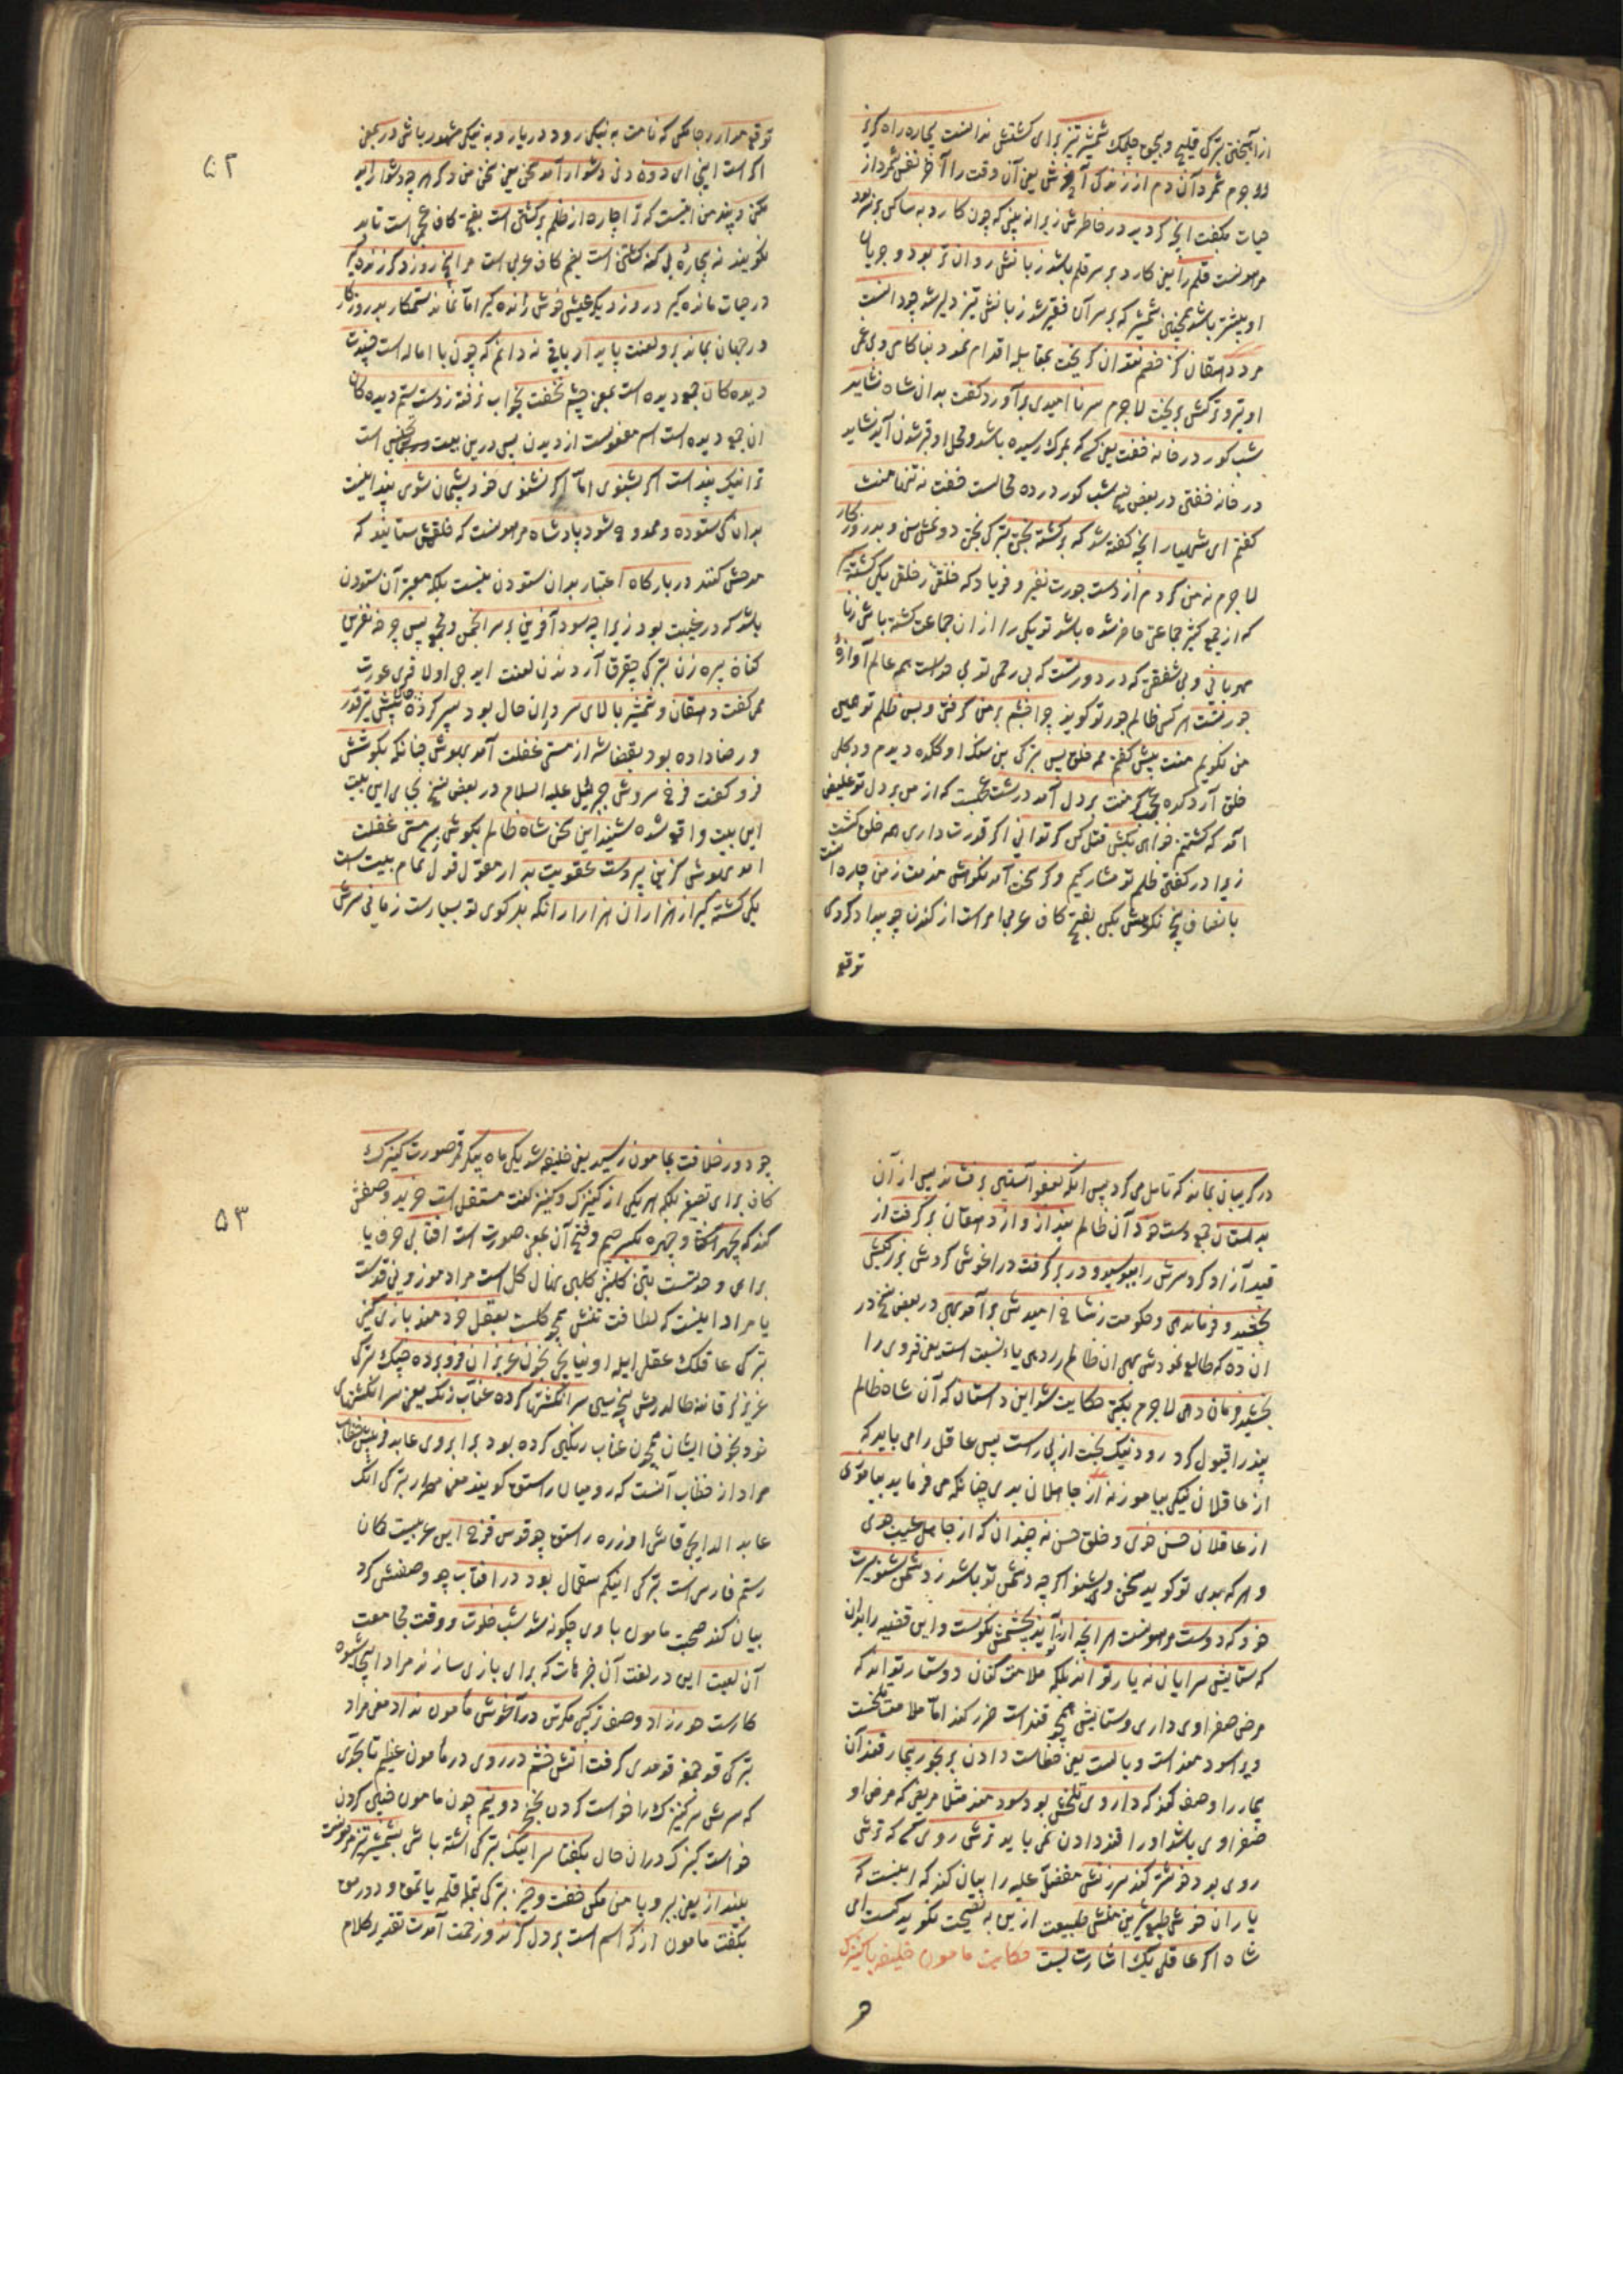 از آهیختن بترکی قیلیچ و بچق چلمک شمشیر تیز برای کشتنش ندانست بیچاره راه گریز
لا جرم شمرد آن دم از زندگی آخرش یعنی آن وقت را آخر نفس شمرد از
حیات بگفت آنچه گردید در خاطرش زیرا نه بینی که چون کارد به ساکن بر سر بود
مر او راست قلم را یعنی کارد بر سر قلم باشد زبانش روان تر بود و جریان
او بیشتر باشد همچنین شمشیر که بر سر آن فقیر شد زبانش تیز و دلیر شد چو دانست
مرد دهقان کز خصم نتوان گریخت بمقابله اقدام نمود و بناکامی و بی غمی
او تیر و ترکش بریخت لا جرم سر نا امیدی برآورد و گفت بدان شاه نشاید
شب گور در خانه خفت یعنی کسی که بمرگ رسیده باشد و محل او قبر شدن آید نشاید
در خانه خفتن در بعض نسخ شب گور در ده محالست خفت نه تنها منت
گفتم ای شهریار آنچه گفته شد که برگشته بختی بترکی بختی دونمش سن و بد روزگار
لا جرم نه من کردم از دست جورت نفیر و فریاد که خلقی ز خلقی یکی کشته گیر
که از جمع کثیر جماعتی حاضر شده باشد تو یکی را از آن جماعت کشته باش زنا
مهربانی و بی شفقتی که در دورتست که بی رحمی تو بی حد است همه عالم آوازهٔ
جورتست هر کس ظالم جور تو گویند چرا خشم بر من گرفتی و بس ظلم تو همین
من نگویم منت پیش گفتم همه خلق پس بترکی بن سکا اوگکده دیدم و دکلی
خلق آردکده عجب کز منت بر دل آمد درشت عجبست که از من بر دل تو غلیظی
آمد که کشتم خواهی بکش قتل کن گر توانی اگر قدرت داری همه خلق کشت
زیرا در گفتن ظلم تو مشارکیم و گر سخت آمد نکوهش مذمت ز من چاره است
بانصاف بیخ نکوهش بکن بفتح کاف عربی امر است از کندن چو بیداد کردی
توقع
۵۲
توقع مدار رجا مکن که نامت به نیکی رود در دیار و به نیکی مشهور باشی در بعض
اگر است اینچنین ای دوه دنی دشوار آمد سخن یعنی سخن من دگر هر چه دشوار آید
مکن و پند من اینست که ترا چاره از ظلم برگشتن است بفتح کاف عجمی است تا بد
نگویند نه بیچاره بی گنه کشتن است بضم کاف عربی است مرا پنج روز دگر زنده گیر
در حیات مانده گیر دو روز دیگر عیش خوش رانده گیر اما نماند ستمکار بد روزگار
در جهان بماند برو لعنت پایدار باقی ندانم که چون با اماله است خسپدت
دیده کان جمع دیده است بمعنی چشم نخفت بخواب نرفته ز دست ستم دیده کان
آن جمع دیده است اسم مفعولست از دیدن پس درین بیت تجنیس است
ترا نیک پندست اگر بشنوی اما اگر نشنوی خود پشیمان شوی پند اینست
بدان کی ستوده و ممدوح شود پادشاه مر اوراست که خلقش ستایند که
مدحش کنند در بارگاه اعتبار بدان ستودن نیست بلکه معتبر آن ستودن
باشد که در غیبت بود زیرا چه سود آفرین بر سر انجمن و جمع پس چرخه نفرین
کنان پیره زن بترکی چقرق آردندن لعنت ایدیجی اولا قری عورت
همی گفت دهقان و شمشیر بالای سر در آن حال بود سپر کرده جان پیش تیر قدر
و رضا داده بود بقضا شه از مستی غفلت آمد بهوش چنانکه بگوشش
فرو گفت فرخ سروش جبرئیل علیه السلام در بعض نسخ بجای این بیت
این بیت واقع شده شنید این سخن شاه ظالم بگوش بسر مستی غفلت
آمد بهوش کزین پیر دست عقوبت بدار مقول قول تمام بیت است
یکی کشته گیر از هزاران هزار از آنکه بدگوی تو بسیارست زمانی سرش
در گریبان بماند که تامل می کرد پس آنکه بعفو آستین بر فشاند پس از آن
بدستان جمع دست خود آن ظالم بند از و از دهقان بر گرفت از
قید آزاد کرد سرش را ببوسید و در بر گرفت در آغوش کردش بزرگیش
بخشید و فرماندهی و حکومت ز شاخ امیدش برآمد بهی در بعض نسخ در
آن ده که طالع نمودش بهی آن ظالم را دهی یاء نسبت است یعنی قروی را
بخشید فرمان دهی لا جرم بگیتی حکایت شد این داستان که آن شاه ظالم
پند را قبول کرد رود نیک بخت از پی راست پس عاقل را می باید که
از عاقلان نیکی بیاموزد نه از جاهلان بدی چنانکه می فرماید بیاموزی
از عاقلان حسن خوی و خلق حسن نه چندان که از جاهل عیب جوی
و هر که بدی تو گوید سخن وی بشنو اگر چه دشمن تو باشد ز دشمن شنو سیرت
خود که دوست مر اوراست هر آنچه از تو آید بچشمش نکوست و این قضیه را بدان
که ستایش سرایان نه یار تو اند بلکه ملامت کنان دوستدار تو اند که
مرض صفراوی داری و ستایش همچو قندست ضرر کند اما ملامت تلخست
ویرا سودمند است وبالست یعنی خطاست دادن برنجور بیمار قند آن
بیمار را وصف کند که داروی تلخش بود سودمند مثلا مریضی که مرض او
صفراوی باشد او را قند دادن نمی باید ترش روی کسی که ترش
روی بود خوشتر کند سرزنش مفضل علیه را بیان کند که اینست که
یاران خوش طبع شیرین منش طبیعت ازین به نصیحت نگوید کست ای
شاه اگر عاقلی یک اشارت بست حکایت مامون خلیفه با کنیزک
چو
۵۳
چو دور خلافت بمامون رسید یعنی خلیفه شد یکی ماه پیکر قمر صورت کنیزک
کاف برای تصغیر بلکه هر یکی از کنیزک و کنیز لغت مستقل است خرید وصفش
کند که بچهر آفتاب و چهره بکسر جیم و فتح آن بمعنی صورت است آفتابی حرف یا
برای وحدتست بتن گلبنی گلبن نهال گل است مراد موزونی قدست
یا مراد اینست که لطافت تنش همچو گلست بعقل خردمند بازی کنی
بترکی عاقلک عقل ایله اوینایجی بخون عزیزان فرو برده چنگ بترکی
عزیزلر قاننه طالدرمش پنجه سیی سر انگشتان کرده عناب رنگ یعنی سر انگشتهای
خود بخون ایشان همچون عناب رنگین کرده بود بر ابروی عابد فریبش خضاب
مراد از خضاب آنست که رومیان راستق گویند معنی مصراع بترکی آنک
عابد الدایجی قاش اوزره راستق چو قوس قزح این عربیست کمان
رستم فارس است بترکی ایلکم سقمال بود در آفتاب چو وصفش کرد
بیان کند صحبت مامون با وی چگونه شد شب خلوت و وقت مجامعت
آن لعبت این در لغت آن خرمات که برای بازی سازند مراد اینجا شیوه
کارست حور زاد وصف ترکیبی مگر تن در آغوش مامون نداد معنی مراد
بترکی قوجمغه قومدی گرفت آتش خشم در وی در مامون عظیم تا بحدی
که سرش سر کنیزک را خواست کردن بخنجر دو نیم چون مامون خیلی کردن
خواست کنیزک در آن حال بگفتا سر اینک بترکی اشته باش بشمشیر تیز مر اوراست
بینداز یعنی ببر و با من مکن خفت و خیز بترکی بنمله قلمه یاتمق و دورمق
بگفت مامون از که اسم است بر دل گزند و زحمت آمدت تقدیر کلام